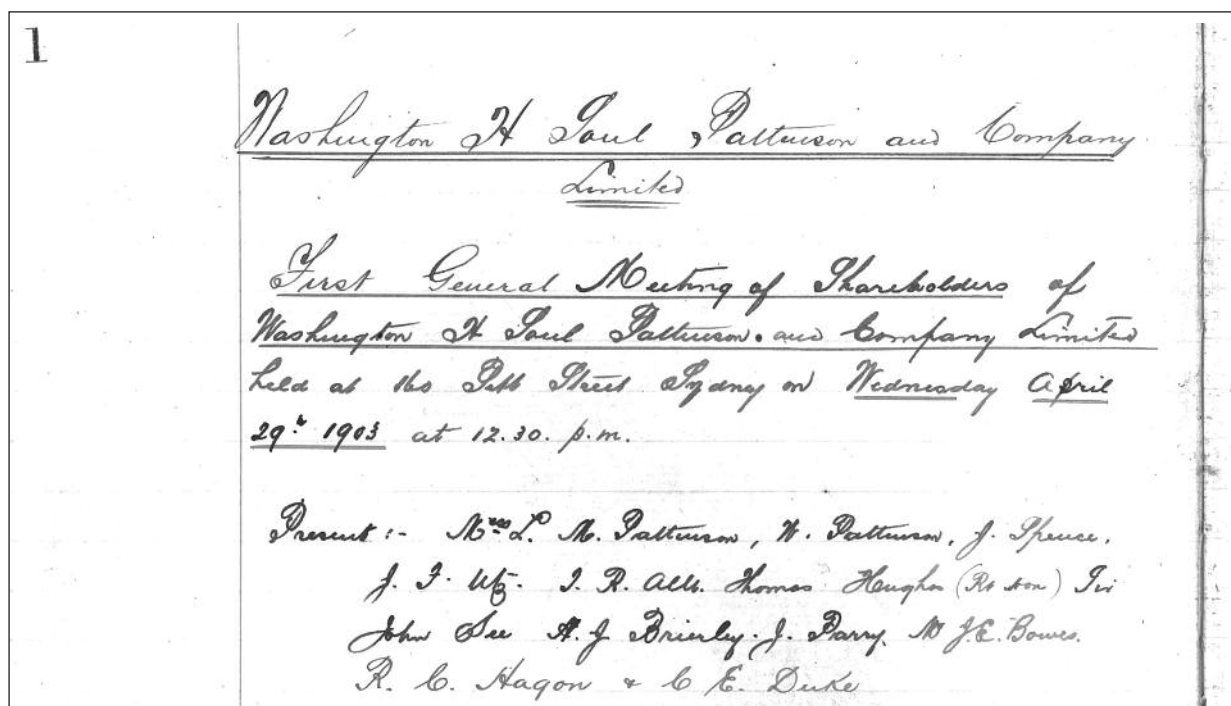 1
Washington H Soul, Pattinson and Company
Limited
First General Meeting of Shareholders of
Washington H Soul Pattinson. and Company Limited
held at 160 Pitt Street Sydney on Wednesday April
29th 1903 at 12.30. p.m.
Present:- Mrs L. M. Pattinson, W. Pattinson, J. Spence,
J. F. I. R. Thomas Hughes (Rt Hon) Sir
John See A. J Brierley. J. Parry. J. E. Bowes.
R. C. Hagon & C E. Duke